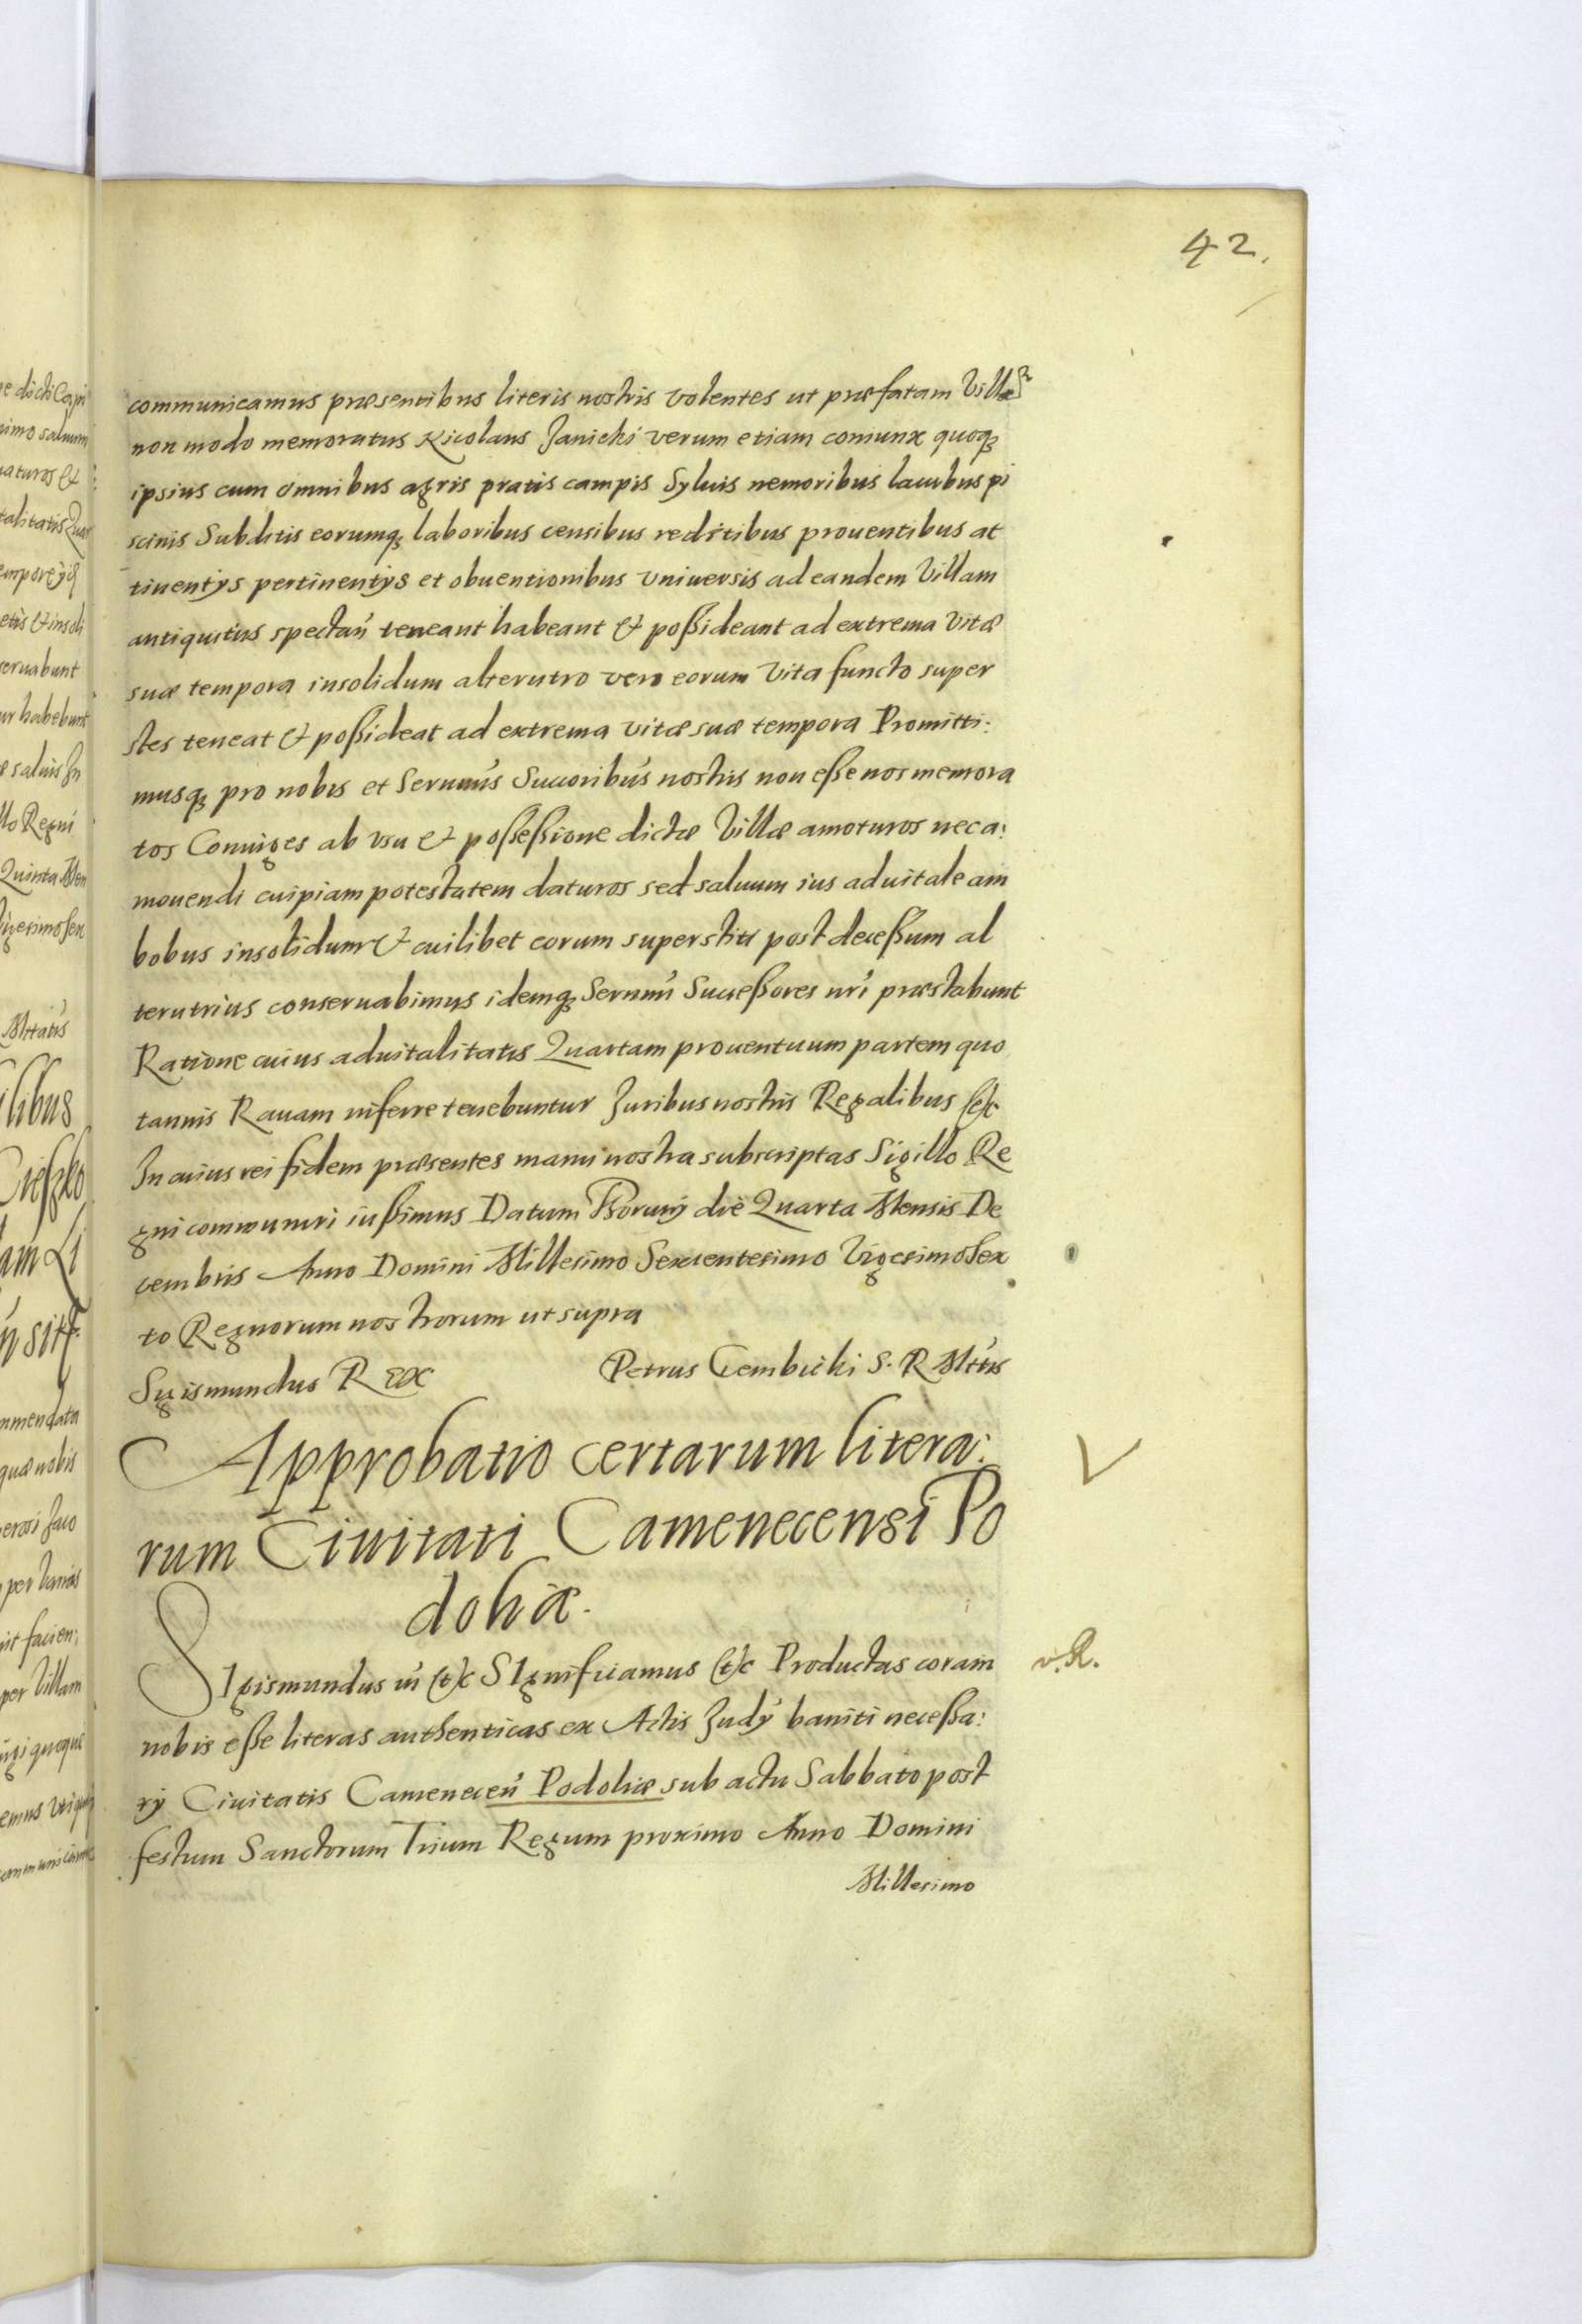 42.
communicamus præsentibus literis nostris volentes ut præfatam Villã
non modo memoratus Nicolaus Janicki verum etiam coniunx quoqȝ
ipsius cum omnibus agris pratis campis Syluis nemoribus lacubus pi
scinis Subditis eorumqȝ laboribus censibus reditibus prouentibus at
tinentijs pertinentijs et obuentionibus vniuersis ad eandem Villam
antiquitus spectañ teneant habeant & possideant ad extrema vitæ
suæ tempora insolidum alterutro vero eorum vita functo super
stes teneat & possideat ad extrema vitæ suæ tempora Promitti:
musqȝ pro nobis et Serenm̃is Succoribũs nostris non esse nos memora
tos Coniuges ab vsu & possessione dictæ Villæ amoturos nec a:
mouendi cuipiam potestatem daturos sed saluum ius aduitale am
bobus insolidum & cuilibet eorum superstiti post decessum al
terutrius conseruabimus idemqȝ Serenm̃i Successores nr̃i præstabunt
Ratione cuius aduitalitatis Quartam prouentuum partem quo
tannis Rauam inferre tenebuntur Juribus nostris Regalibus (et)c
In cuius rei fidem præsentes manu nostra subscriptas Sigillo Re
gni communiri iussimus Datum Thorunij die Quarta Mensis De
cembris Anno Domini Millesimo Sexcentesimo Vigesimo Sex
to Regnorum nostrorum ut supra
Sigismundus REX Petrus Gembicki S. R. Mttis
Approbatio certarum litera:
rum Ciuitati Camenecensi Po
doliæ.
SIgismundus iii (et)c SIgnificamus (et)c Productas coram
v. R.
nobis esse literas authenticas ex Actis Judij baniti necessa:
rij Ciuitatis Cameneceñ Podoliæ sub actu Sabbato post
festum Sanctorum Trium Regum proximo Anno Domini
Millesimo